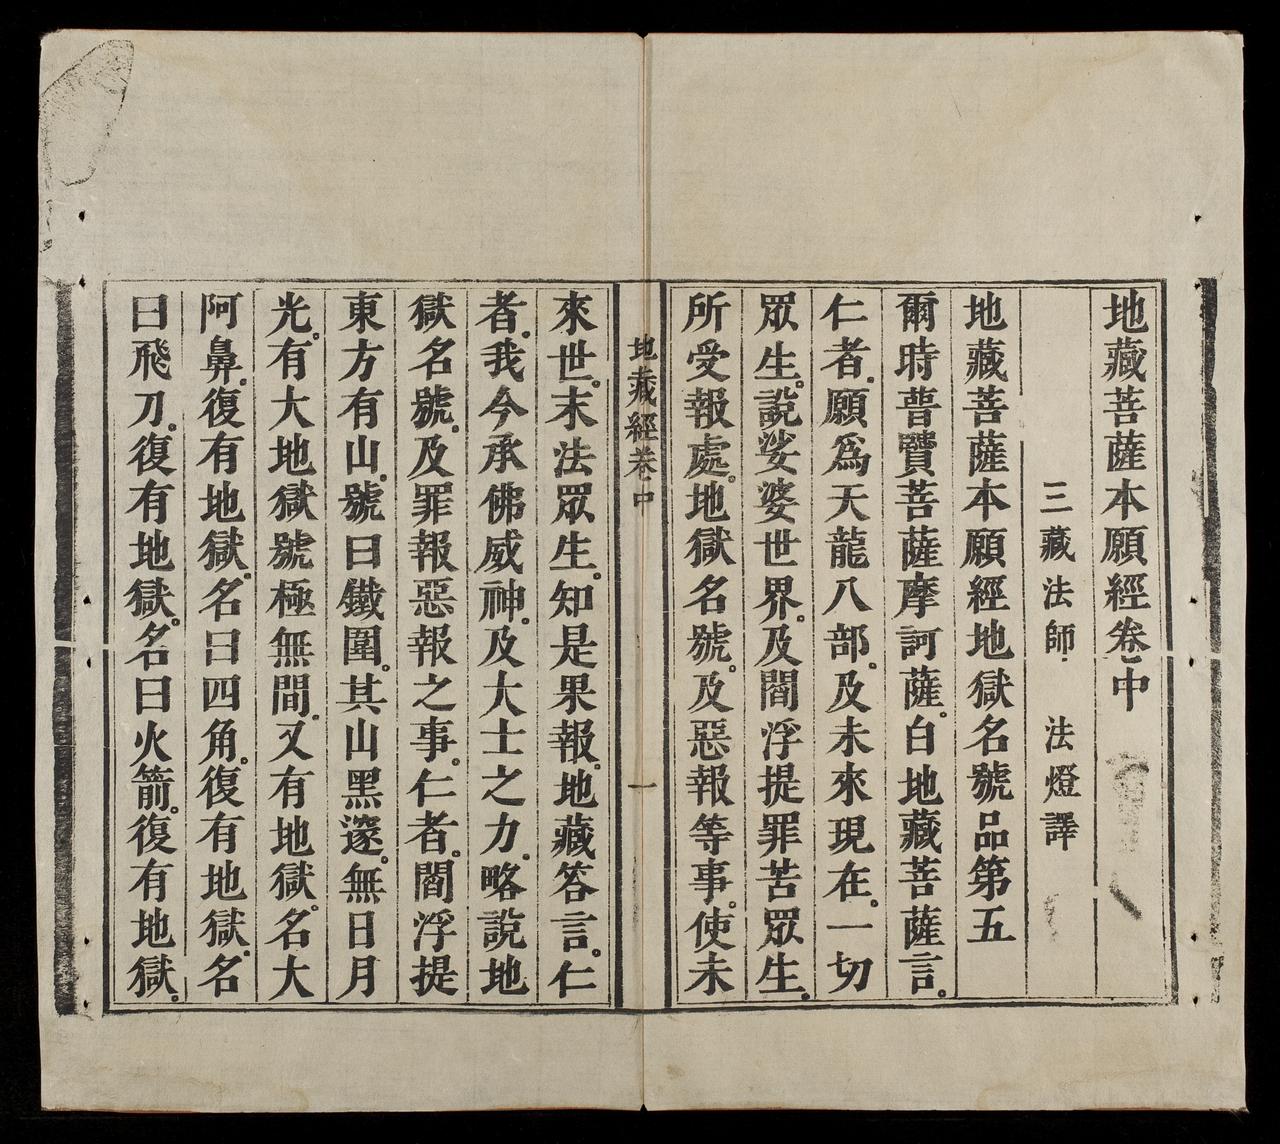 地藏菩薩本願經卷中
三藏法師　法燈譯
地藏菩薩本願經地獄名號品第五
爾時普賢菩薩摩訶薩。白地藏菩薩言。
仁者。願爲天龍八部。及未來現在。一切
眾生。說娑婆世界。及閻浮提罪苦眾生。
所受報處。地獄名號。及惡報等事。使未
地藏經卷中
一
來世。末法眾生。知是果報。地藏答言。仁
者。我今承佛威神。及大士之力。略說地
獄名號。及罪報惡報之事。仁者。閻浮提
東方有山。號曰鐵圍。其山黑邃。無日月
光。有大地獄號極無間。又有地獄。名大
阿鼻。復有地獄。名曰四角。復有地獄。名
曰飛刀。復有地獄。名曰火箭。復有地獄。